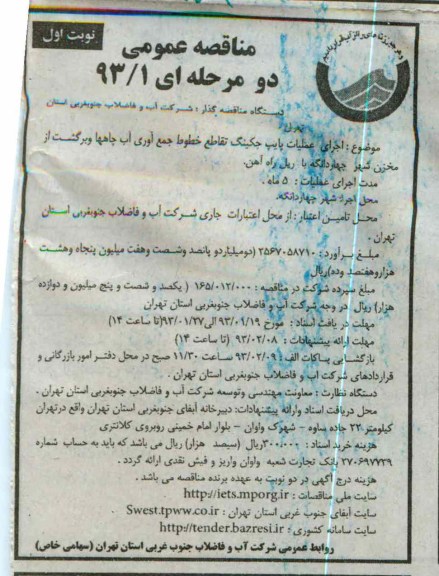 نوبت اول
مناقصه عمومی
دو مرحله ای ۹۳/۱
دستگاه مناقصه گذار : شرکت آب و فاضلاب جنوبغربی استان
تهران
موضوع : اجرای عملیات پایپ جکینگ تقاطع خطوط جمع آوری آب چاهها وبرگشت از
مخزن شهر چهاردانگه با ریل راه آهن.
مدت اجرای عملیات : ۵ ماه .
محل اجرا: شهر چهاردانگه.
محل تامین اعتبار : از محل اعتبارات جاری شرکت آب و فاضلاب جنوبغربی استان
تهران .
مبلغ برآورد : ۲۵۶۷۰۵۸۷۱۰ (دومیلیاردو پانصد وشصت وهفت میلیون پنجاه وهشت
هزاروهفتصد وده)ریال
مبلغ سپرده شرکت در مناقصه : ۱۶۵/۰۱۲/۰۰۰ ( یکصد و شصت و پنج میلیون و دوازده
هزار) ریال در وجه شرکت آب و فاضلاب جنوبغربی استان تهران
مهلت دریافت اسناد : مورخ ۹۳/۰۱/۱۹ الی ۹۳/۰۱/۲۷(تا ساعت ۱۴)
مهلت ارائه پیشنهادات : ۹۳/۰۲/۰۸ (تا ساعت ۱۴)
بازگشایی پاکات الف : ۹۳/۰۲/۰۹ ساعت ۱۱/۳۰ صبح در محل دفتر امور بازرگانی و
قراردادهای شرکت آب و فاضلاب جنوبغربی استان تهران .
دستگاه نظارت : معاونت مهندسی وتوسعه شرکت آب و فاضلاب جنوبغربی استان تهران .
محل دریافت اسناد وارائه پیشنهادات: دبیرخانه آبفای جنوبغربی استان تهران واقع درتهران
کیلومتر ۲۲ جاده ساوه - شهرک واوان - بلوار امام خمینی روبروی کلانتری
هزینه خرید اسناد : ۳۰۰/۰۰۰ریال (سیصد هزار) ریال می باشد که باید به حساب شماره
۲۷۰۶۹۷۷۳۹ بانک تجارت شعبه واوان واریز و فیش نقدی ارائه گردد .
هزینه درج آگهی در دو نوبت به عهده برنده مناقصه می باشد .
سایت ملی مناقصات : http://iets.mporg.ir
سایت آبفای جنوب غربی استان تهران : Swest.tpww.co.ir
سایت سامانه کشوری : http://tender.bazresi.ir
روابط عمومی شرکت آب و فاضلاب جنوب غربی استان تهران (سهامی خاص)